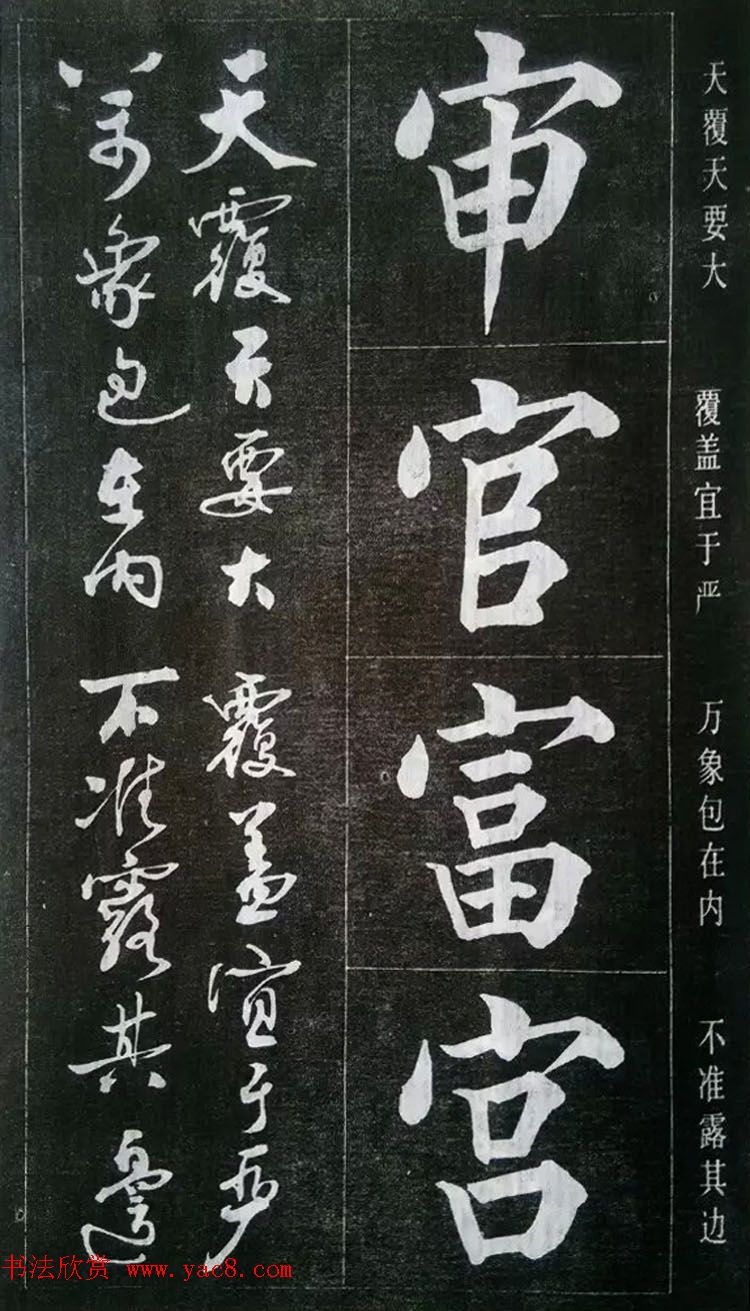 天覆天要大 覆盖宜于严 万象包在内 不准露其边
审官富宫
天覆天要大 覆盖宜于严
萬象包在内 不准露其邊
书法欣赏 www.yac8.com